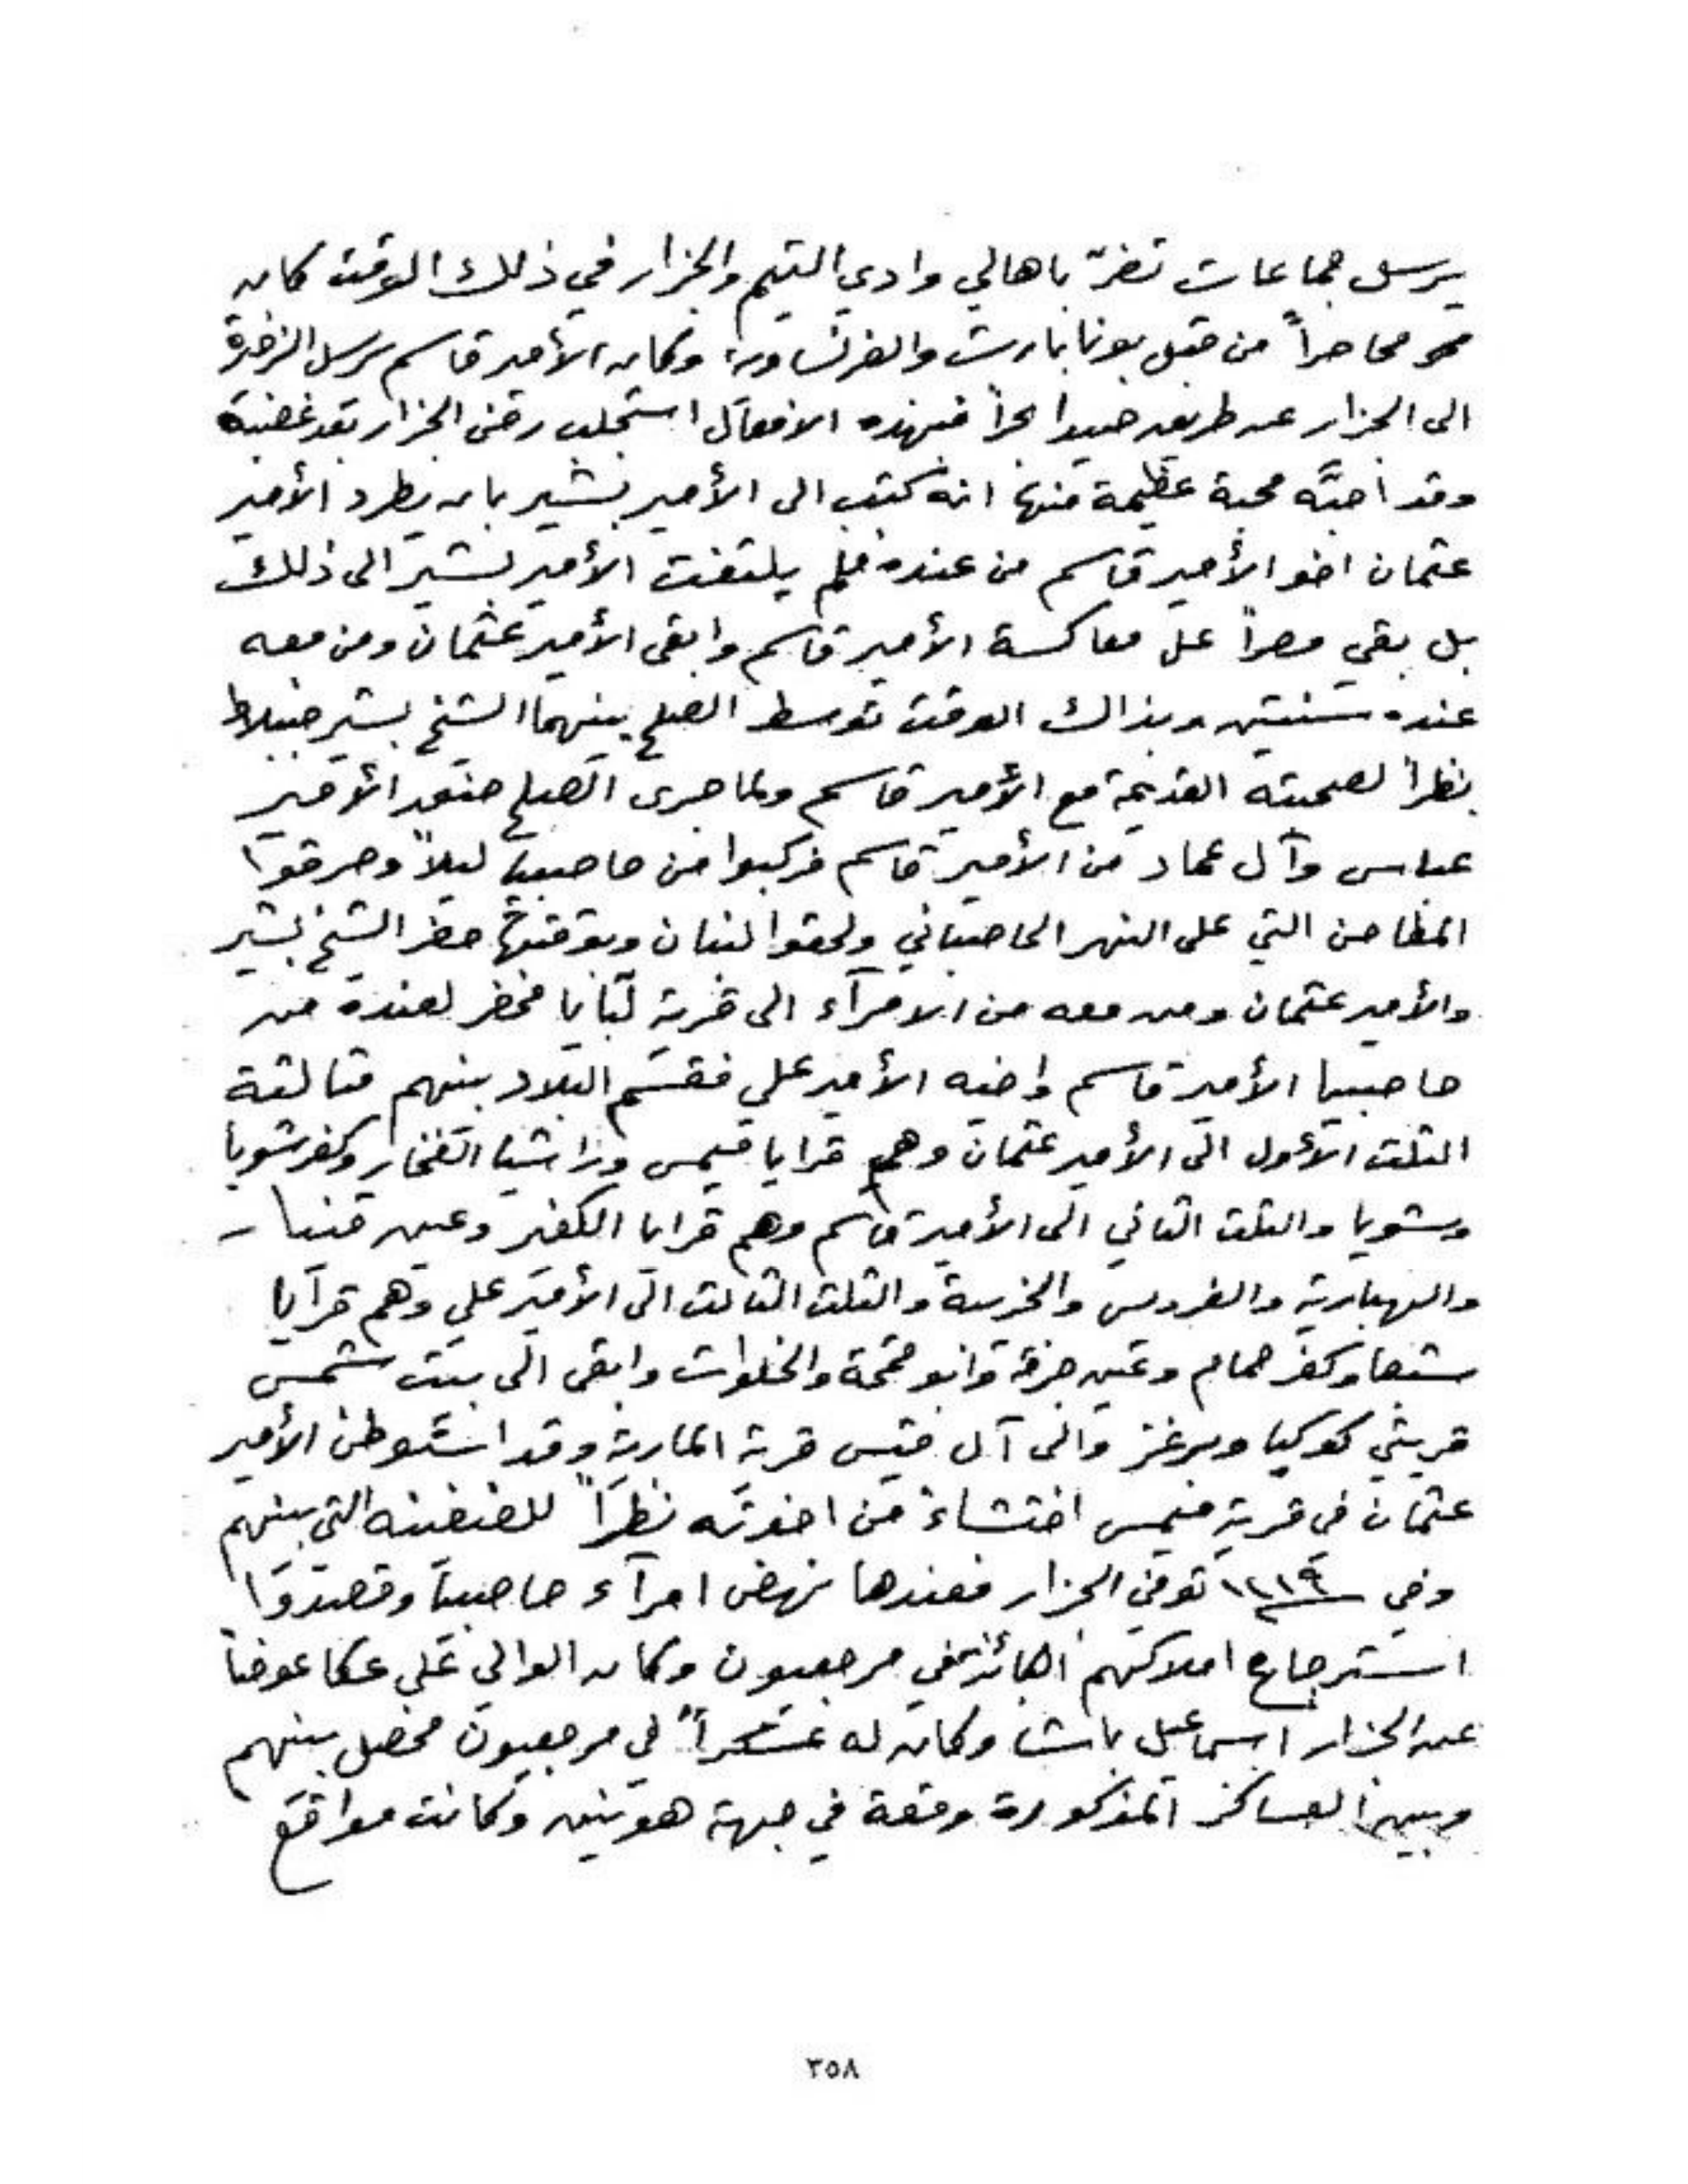 يرسل جماعات تضرّ باهالي وادي التيم والجزار في ذلك الوقت كان
هو محاصراً من قبل بونابارت والفرنساوية وكان الأمير قاسم يرسل الزخرة
الى الجزار عن طريق صيدا بحراً فبهذه الافعال استجلب رضى الجزار بعد غضبه
وقد احبَّه محبة عظيمة منها انه كتب الى الأمير بشير بان يطرد الأمير
عثمان اخو الأمير قاسم من عنده فلم يلتفت الأمير بشير الى ذلك
بل بقي مصراً على معاكسة الأمير قاسم وابقى الأمير عثمان ومن معه
عنده سنتين وبذاك الوقت توسط الصلح بينهما الشيخ بشير جنبلاط
نظراً لصحبته القديمة مع الأمير قاسم ولما جرى الصلح الأمير
عباس وآل عماد من الأمير قاسم فركبوا من حاصبيا ليلاً وحرقوا
المطاحن التي على النهر الحاصباني ولحقوا لبنان وبوقتها حضر الشيخ بشير
والأمير عثمان ومن معه من الامرآء الى قرية لبايا فحضر لعنده من
حاصبيا الأمير قاسم واخيه الأمير علي فقسّم البلاد بينهم مثالثة
الثلث الأول الى الأمير عثمان وهم قرايا ميمس وراشيا الفخار وكفرشوبا
وشويا والثلث الثاني الى الأمير قاسم وهم قرايا الكفير وعين قنيا
والهبارية والفرديس والخريبة والثلث الثالث الى الأمير علي وهم قرايا
شبعا وكفر حمام وعين جرفا وابو قمحة والخلوات وابقى الى بيت شمس
قريتي كوكبا وبرغز والى آل قيس قرية المارية وقد استوطن الأمير
عثمان في قرية ميمس اختشاء من اخوته نظراً للضغينه التي بينهم
وفي ١٢١٩ توفى الجزار فعندها نهض امرآء حاصبيا وقصدوا
استرجاع املاكهم في مرجعيون وكان الوالي على عكا عوضاً
عن الجزار اسماعيل باشا وكان له عسكراً في مرجعيون فحصل بينهم
وبين العساكر المذكورة وقعة في جهة هونين وكانت مواقع
٣٥٨